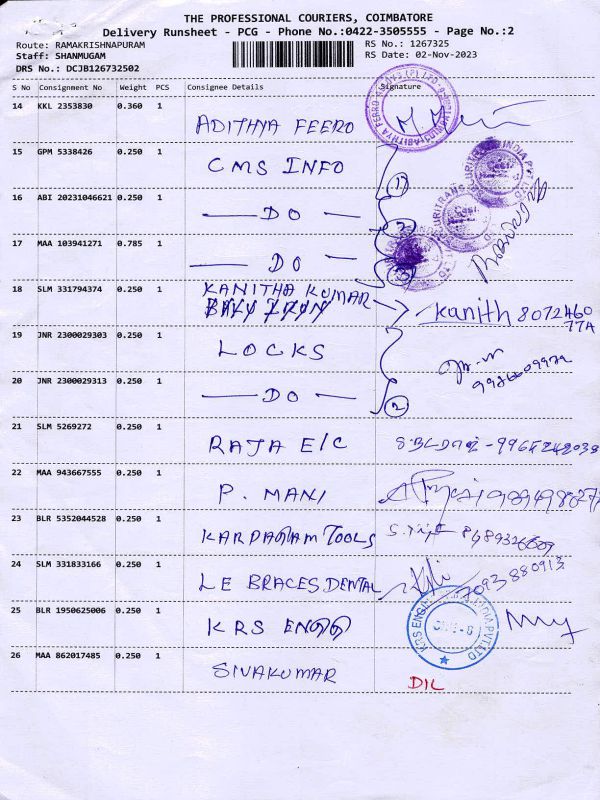 THE PROFESSIONAL COURIERS, COIMBATORE
Delivery Runsheet - PCG - Phone No.:0422-3505555 - Page No.:2
Route: RAMAKRISHNAPURAM RS No.: 1267325
Staff: SHANMUGAM RS Date: 02-Nov-2023
DRS No.: DCJB126732502
S No Consignment No Weight PCS Consignee Details Signature
14 KKL 2353830 0.360 1
ADITHYA FEERO
15 GPM 5338426 0.250 1
CMS INFO
1
16 ABI 20231046621 0.250 1
DO
2
17 MAA 103941271 0.785 1
DO
3
18 SLM 331794374 0.250 1
KANITHA KUMAR
Kanith 8072460
77A
19 JNR 2300029303 0.250 1
LOCKS
20 JNR 2300029313 0.250 1
DO
2
21 SLM 5269272 0.250 1
RAJA E/C
22 MAA 943667555 0.250 1
P. MANI
23 BLR 5352044528 0.250 1
KARPAGAM TOOLS
24 SLM 331833166 0.250 1
LE BRACES DENTAL
7093880913
25 BLR 1950625006 0.250 1
KRS ENGG
26 MAA 862017485 0.250 1
SIVAKUMAR
DIL